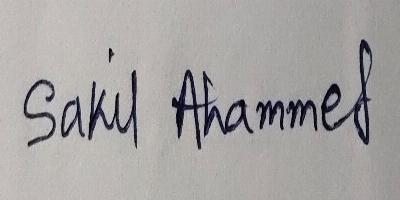 Sakil Ahammed